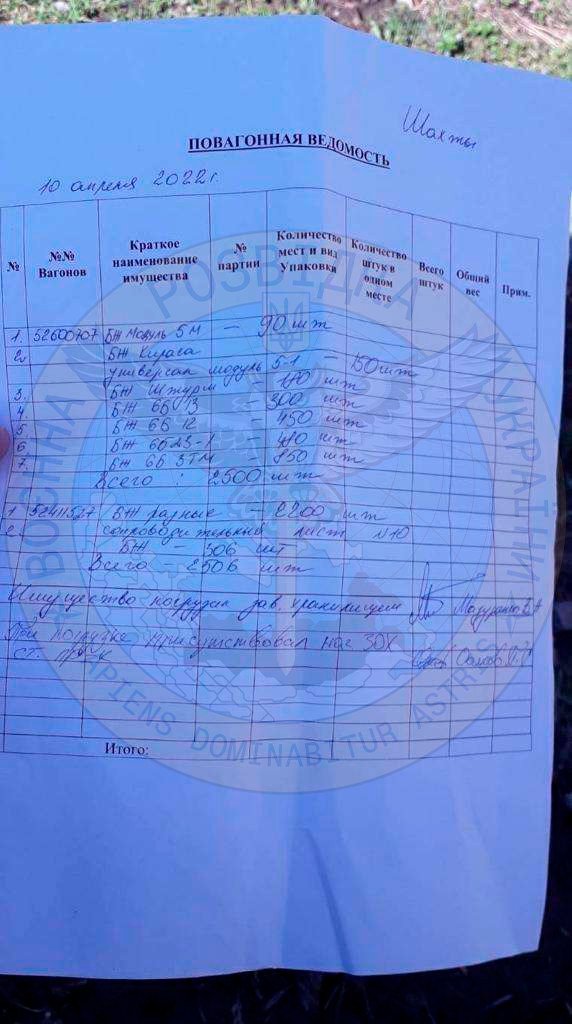 Шахты
ПОВАГОННАЯ ВЕДОМОСТЬ
10 апреля 2022 г.
№
№№ Вагонов
Краткое наименование имущества
№ партии
Количество мест и вид Упаковки
Количество штук в одном месте
Всего штук
Общий вес
Прим.
1. 52600707 БЖ Модуль 5М — 90 шт
2. БЖ Кираса
универсал модуль 5-1 — 150 шт
3. БЖ Штурм — шт
4 БЖ 6Б 13 — 300 шт
5 БЖ 6Б 12 — 450 шт
6 БЖ 6Б23-1 — шт
7. БЖ 6Б 3ТМ — 850 шт
Всего : 2500 шт
1 БЖ разные — 2200 шт
2. сопроводительный лист №10
БЖ — 306 шт
Всего — 2506 шт
Имущество погрузил зав. хранилищем
При погрузке присутствовал нач ЗОХ
ст. пр-к
Итого:
ВОЄННА РОЗВІДКА УКРАЇНИ
SAPIENS DOMINABITUR ASTRIS